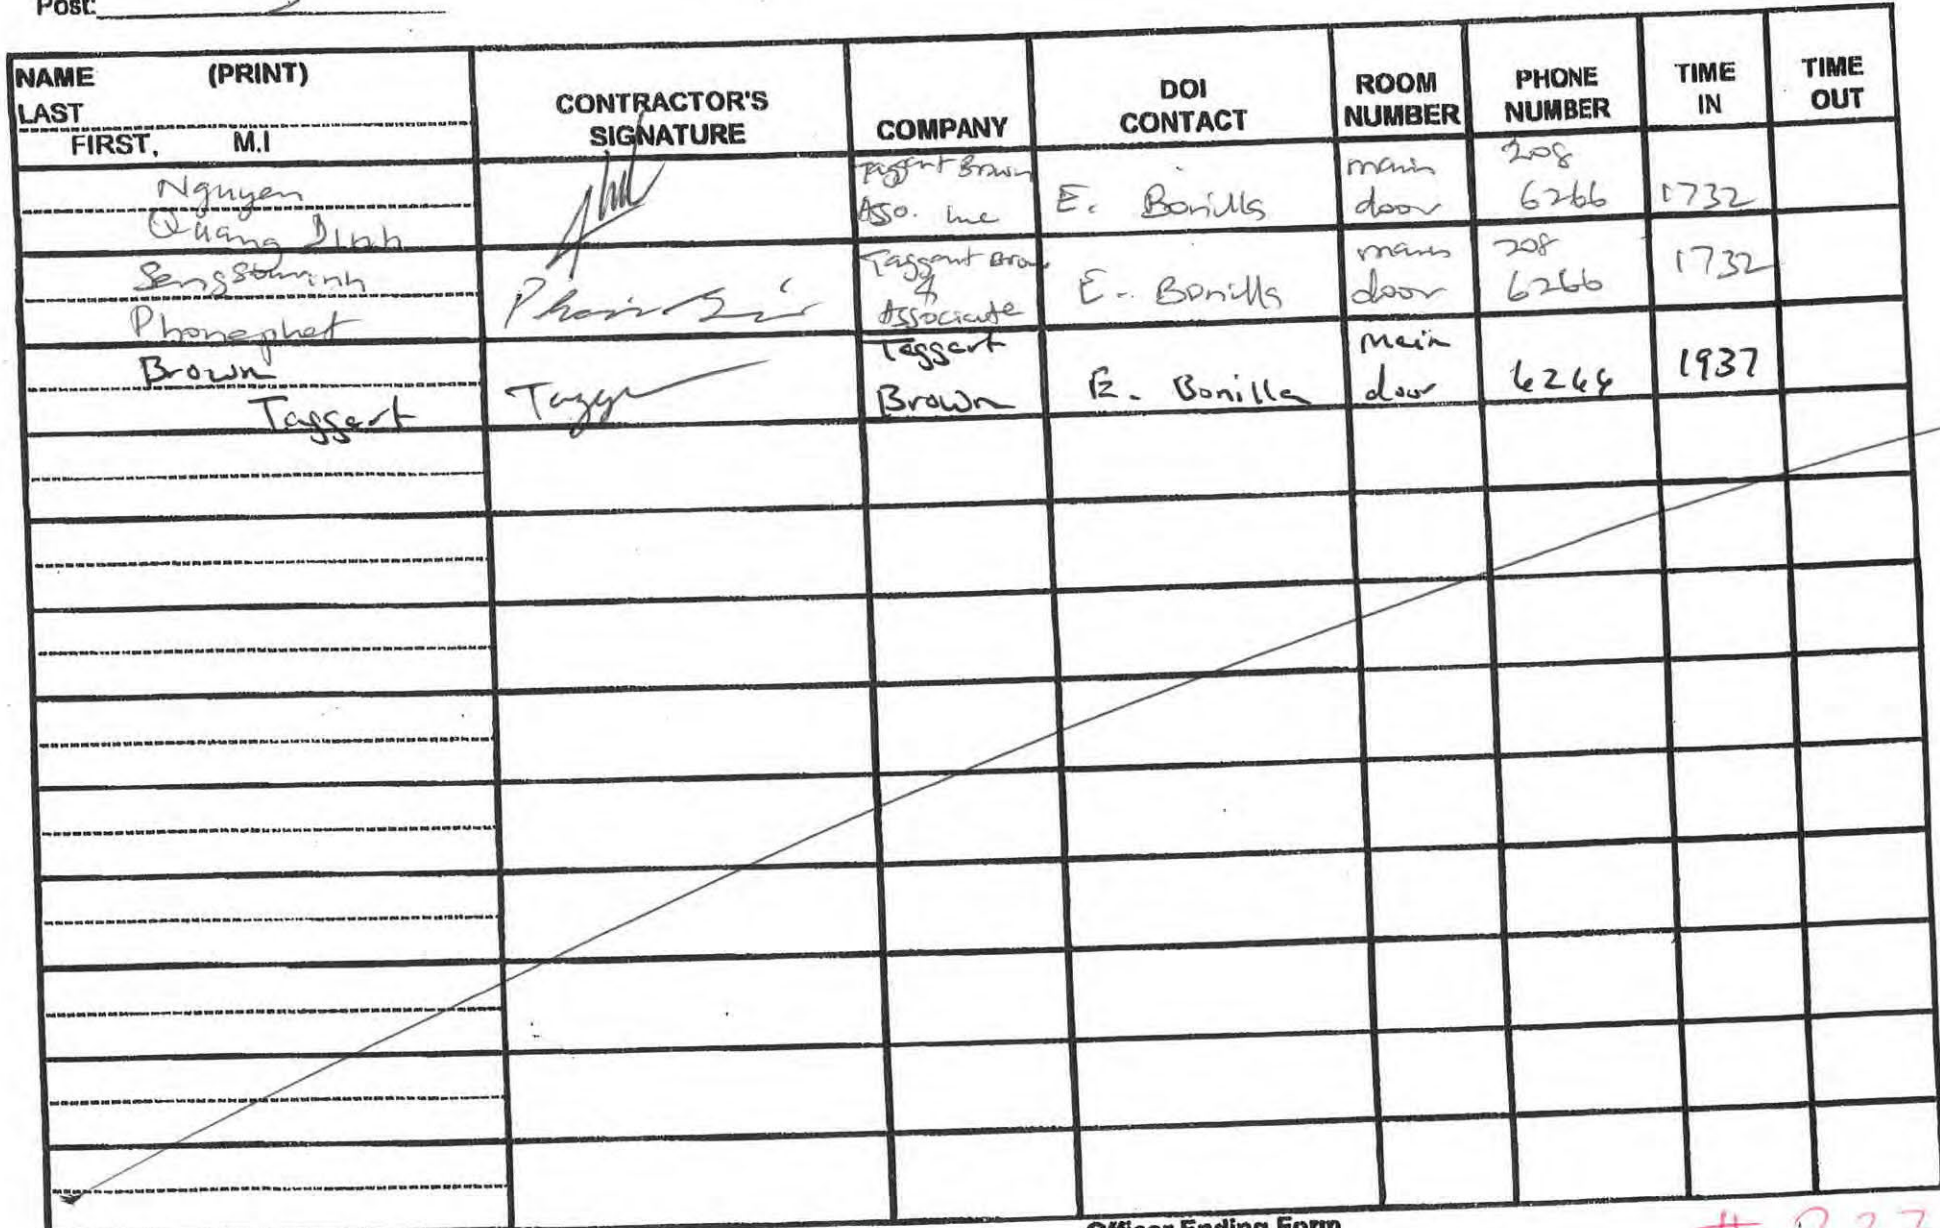 Post:
NAME (PRINT)
LAST
FIRST, M.I
CONTRACTOR'S
SIGNATURE
COMPANY
DOI
CONTACT
ROOM
NUMBER
PHONE
NUMBER
TIME
IN
TIME
OUT
Nguyen
Quang Dinh
Taggart Brown
Asso. Inc
E. Bonilla
main
door
208
6266
1732
Phonephet
Taggart Brown
&
Associate
E. Bonilla
main
door
208
6266
1732
Brown
Taggart
Taggart
Brown
E. Bonilla
Main
door
1937
Officer Ending Form